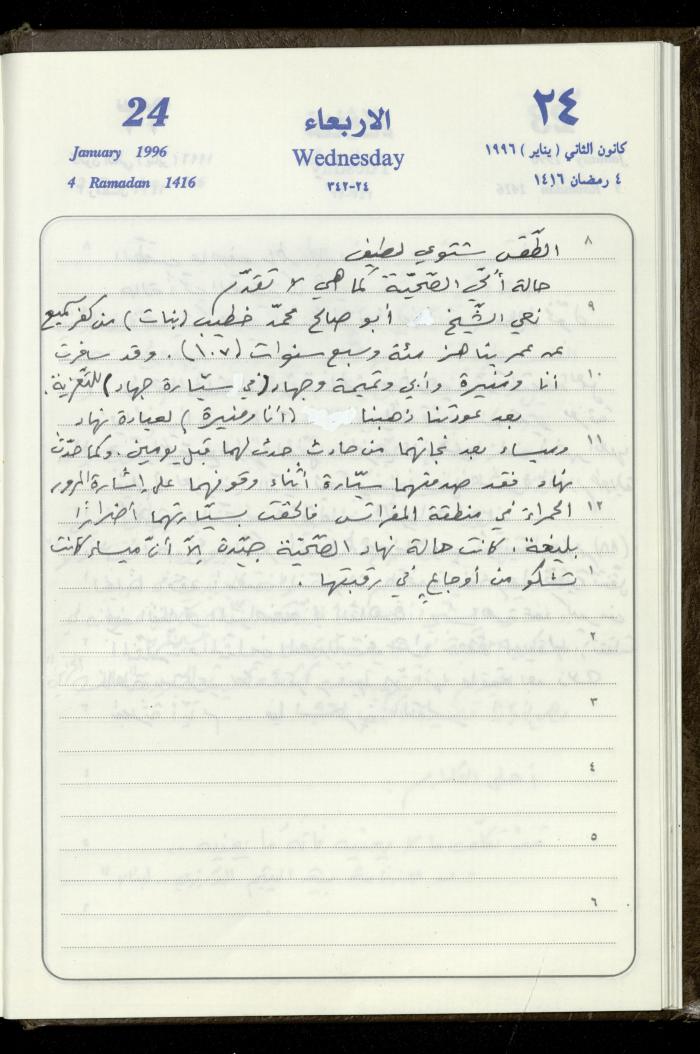 24
الاربعاء
٢٤
January 1996
Wednesday
كانون الثاني ( يناير ) ١٩٩٦
4 Ramadan 1416
٢٤-٣٤٢
٤ رمضان ١٤١٦
٨ الطّقس شتوي لطيف
حالة أمّي الصّحيّة كما هي لا تقدّم
٩ نعي الشّيخ أبو صالح محمّد خطيب (بنات) من كفر سميع
عن عمر يناهز مئة وسبع سنوات (١٠٧). وقد سافرت
١٠ أنا ومنيرة وأبي وتميمة وجهاد (في سيّارة جهاد) للتّعزية.
بعد عودتنا ذهبنا (أنا ومنيرة) لعيادة نهاد
١١ وميساء بعد نجاتهما من حادث حدث لهما قبل يومين. وكما حدّث
نهاد فقد صدمتهما سيّارة أثناء وقوفهما على إشارة المرور
١٢ الحمراء في منطقة المفراتس فالحقت بسيّارتهما أضرارًا
بليغة. كانت حالة نهاد الصّحيّة جيّدة إلّا أنّ ميساء كانت
١ تشكو من أوجاعٍ في رقبتها.
٢
٣
٤
٥
٦